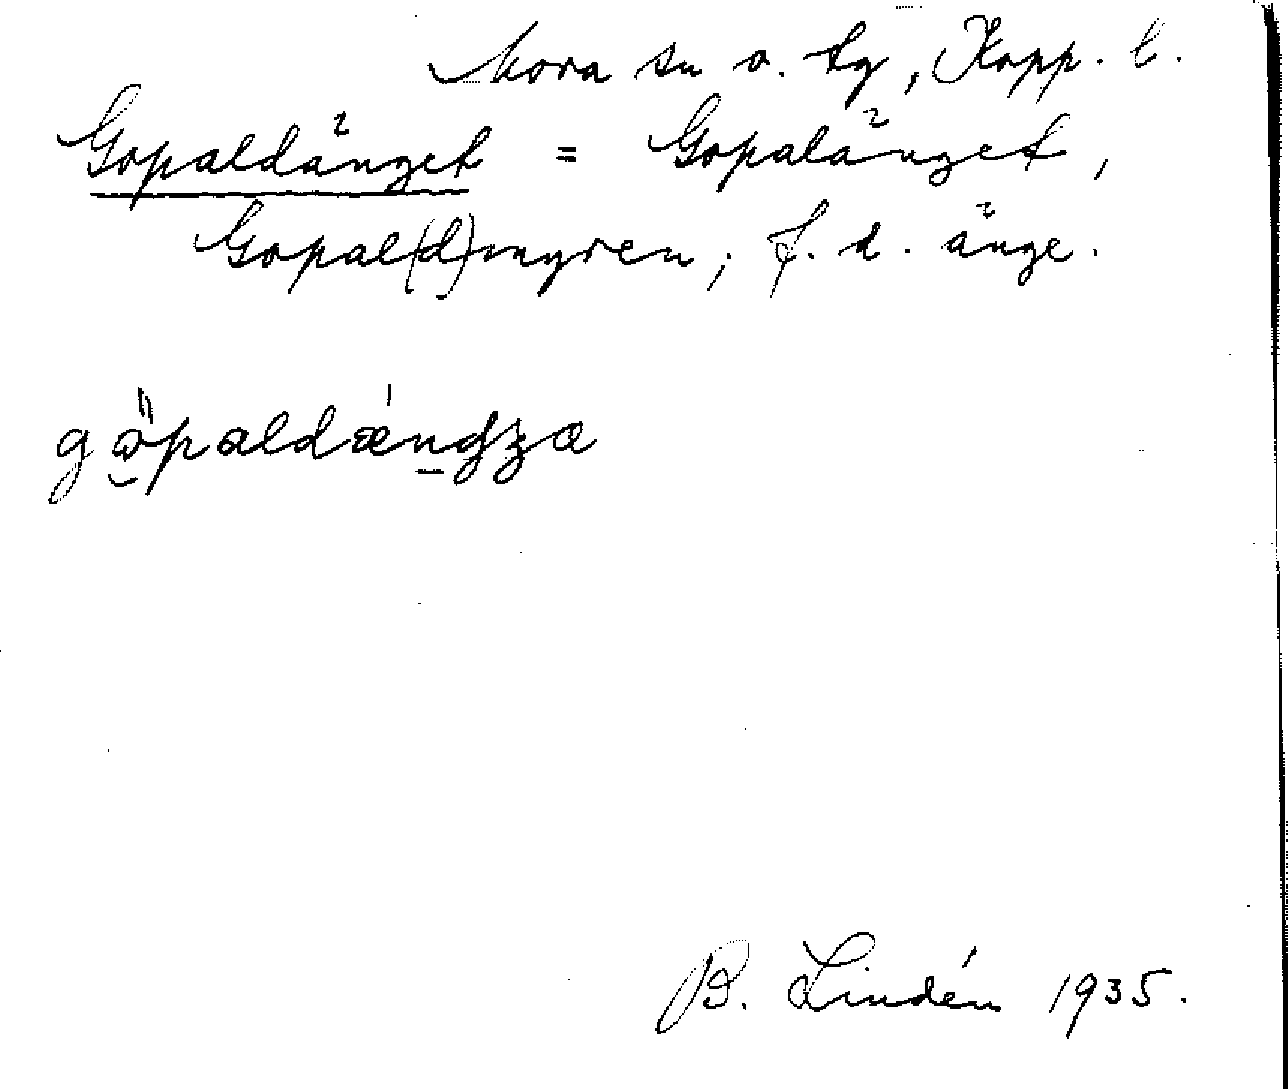 Mora sn o. tg, Kopp. l.
Gopaldänget = Gopalänget,
Gopal(d)myren; f. d. änge.
gö̀paldǽndza
B. Lindén 1935.